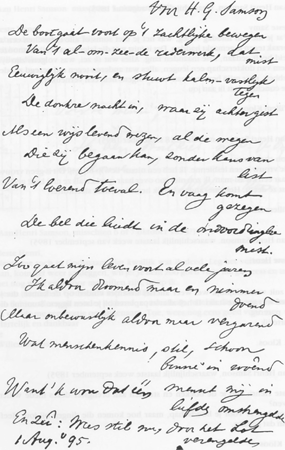 Voor H. G. Samson
De boot gaat voort op 't zachtlijke bewegen
Van 't al-om-zee-de raderwerk, dat
mist
Eeuwiglijk nooit, en stuwt kalm-vastlijk
tegen
De donkre nacht in, waar zij achter gist
Als een wijs levend wezen, al de wegen
Die zij begaan kan, zonder kans van
list
Van 't loerend toeval. En vaag komt
gezegen
De bel die luidt in de
mist.
Zoo gaat mijn leven voort al vele jaren
Ik aldoor droomend maar en nimmer
doend
Maar onbewustlijk aldoor maar vergarend
Wat menschenkennis, stil, schoon
binne' in woênd
Want 'k won dat één mensch mij in
liefde omstrengelde
En zei: Wees stil nu, door het Lot
verengelde
1 Aug. '95.